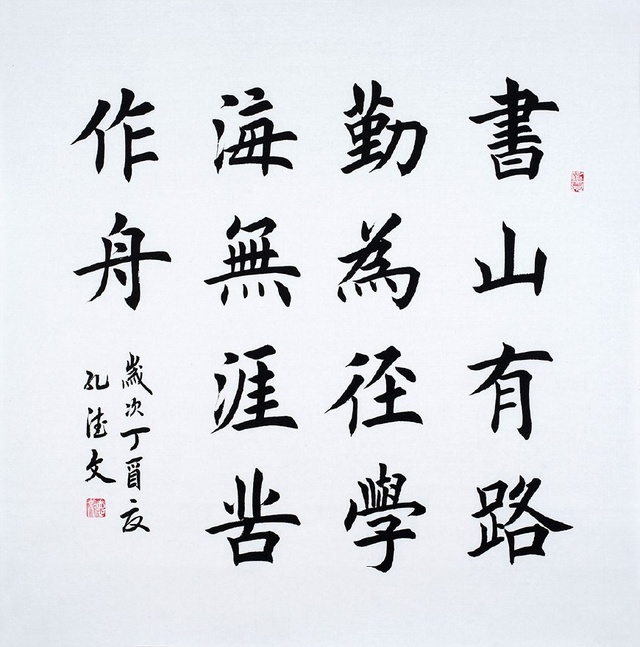 書山有路
勤為径學
海無涯苦
作舟
歲次丁酉夏
孔德文